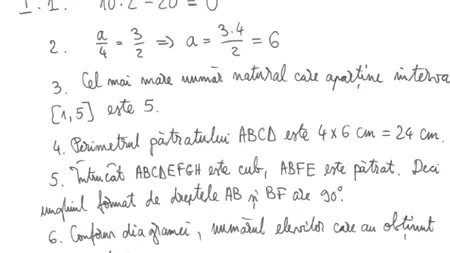 I. 1. 10·2-20=0
2. a/4 = 3/2 => a = 3·4/2 = 6
3. Cel mai mare număr natural care aparține interva
[1,5] este 5.
4. Perimetrul pătratului ABCD este 4×6 cm = 24 cm.
5. Întrucât ABCDEFGH este cub, ABFE este pătrat. Deci
unghiul format de dreptele AB și BF are 90°.
6. Conform diagramei, numărul elevilor care au obținut